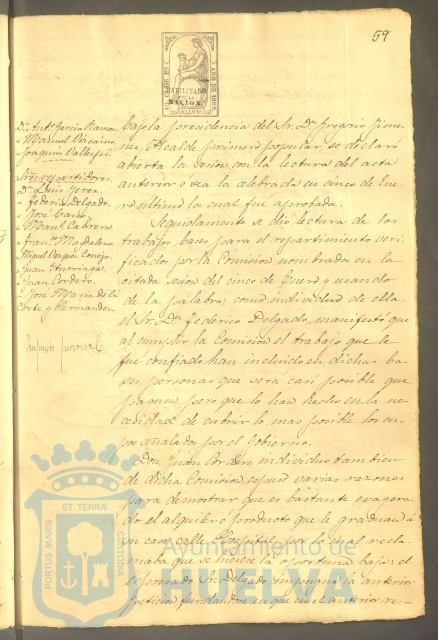 59
HABILITADO
POR LA
NACION.
D. Anto. Garcia Ramos
" Manuel Vizcaino
" Joaquin Vallesfar
Sres. repartidores
Dn. Luis Perez
" Federico Delgado
" José Cano
" Manl. Cabrera
" Franco. Magdaleno
Miguel Vazquez Conejo
" Juan Iturriaga
" Juan Cordero
" José Maria de la
Corte y Hernandez
bajo la presidencia del Sr. Dn. Gregorio Jime-
nez, Alcalde primero popular se declaró
abierta la sesion con la lectura del acta
anterior o sea la celebrada en cinco de Ene-
ro ultimo la cual fue aprobada.
Seguidamente se dió lectura de los
trabajos bases para el repartimiento veri-
ficados por la Comision nombrada en la
citada sesion del cinco de Enero y usando
de la palabra, como individuo de ella
el Sr. Dn. Federico Delgado, manifestó que
al cumplir la Comision el trabajo que le
fue confiado han incluido en dichas ba-
ses personas que sera casi posible que
paguen, pero que lo han hecho en la ne-
cesidad de cubrir lo mas posible los cu-
pos señalado por el Gobierno.
Don Juan Cordero, individuo tambien
de dicha Comision, espuso varias razones
para demostrar que es bastante exagera-
do el alquiler o producto que le graduan á
su casa calle Hospital, por lo cual recla-
maba que se hiciese la oportuna baja: el
espresado Sr. Delgado impugnó la anterior
peticion fundandose en que en el anterior re-
PORTUS MARIS
ET TERRÆ
CUSTODIA
Ayuntamiento de
HUELVA